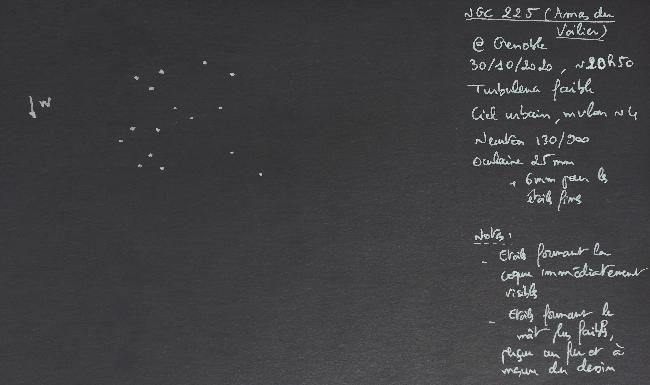 NGC 225 (Amas du
Voilier)
@ Grenoble
30/10/2020, ~20h50
Turbulence faible
Ciel urbain, mvlon ~4
Newton 130/900
Oculaire 25 mm
+ 6mm pour les
étoiles fines
W
Notes:
- Etoiles formant la
coque immédiatement
visibles
- Etoiles formant le
mât plus faibles,
perçues au fur et à
mesure du dessin